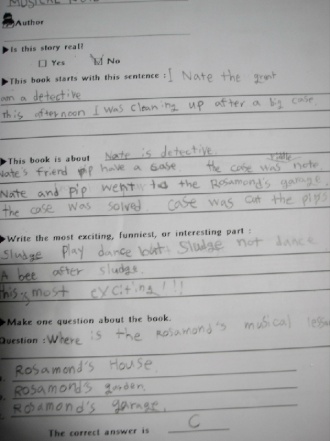 MUSICAL NOTE
Author
▶Is this story real?
☐ Yes ☑ No
▶This book starts with this sentence : I Nate the great
am a detective
this afternoon I was cleaning up after a big case.
▶This book is about Nate is detective.
Nate's friend pip have a case. the case was note
Nate and pip went to the Rosamond's garage.
the case was solved case was cut the pip's
▶Write the most exciting, funniest, or interesting part :
Sludge play dance but, Sludge not dance
A bee after sludge.
this is most exciting!!!
▶Make one question about the book.
Question : Where is the Rosamond's musical
Rosamond's House.
Rosamond's garden
Rosamond's garage.
The correct answer is C